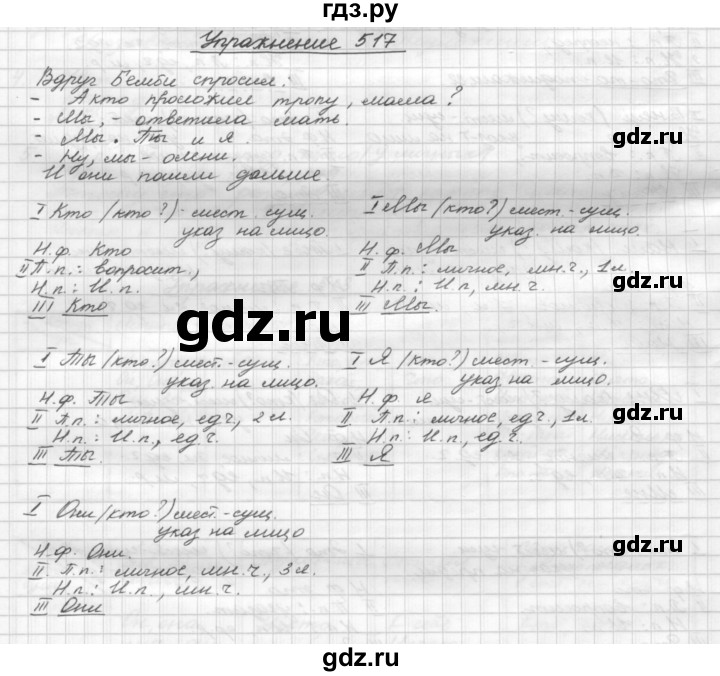 гдз.ру
Упражнение 517
Вдруг Бемби спросил:
- А кто проложил тропу, мама?
- Мы, - ответила мать.
- Мы. Ты и я.
- Ну, мы - олени.
И они пошли дальше.
I Кто (кто?) - мест. сущ.
указ. на лицо.
Н.ф. Кто
II П.п.: вопросит.,
Н.п.: И.п.
III Кто
I Мы (кто?) мест.-сущ.
указ. на лицо.
Н.ф. Мы
II П.п.: личное, мн.ч., 1л.
Н.п.: И.п, мн.ч.
III Мы.
I Ты (кто?) мест.-сущ.
указ. на лицо.
Н.ф. Ты
II П.п.: личное, ед.ч., 2л.
Н.п.: И.п., ед.ч.
III Ты.
I Я (кто?) мест.-сущ.
указ. на лицо.
Н.ф. я
II П.п.: личное, ед.ч., 1л.
Н.п.: И.п., ед.ч.
III Я
I Они (кто?) мест.-сущ.
указ. на лицо
Н.ф. Они.
II. П.п.: личное, мн.ч., 3л.
Н.п.: И.п., мн.ч.
III Они
gdz.ru
gdz.ru
gdz.ru
gdz.ru
gdz.ru
gdz.ru
gdz.ru